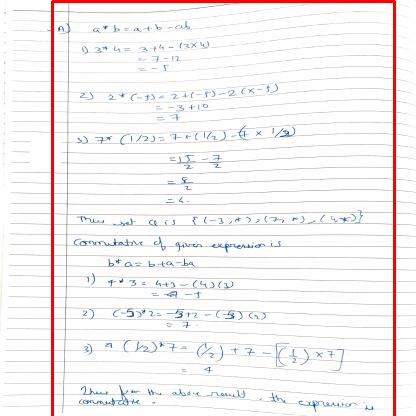 A) a * b = a + b - ab
1) 3 * 4 = 3+4 - (3x4)
= 7 - 12
= - 5
2) 2 * (-5) = 2 + (-5) - 2 (x -5)
= -3 + 10
= 7
3) 7 * (1/2) = 7 + (1/2) - (7 x 1/2)
= 15/2 - 7/2
= 8/2
= 4.
Thus set Q is {(-3,*), (7,*), (4*)}
Commutative of given expression is
b * a = b + a - ba
1) 4 * 3 = 4+3 - (4)(3)
2) (-5) * 2 = -5+2 - (-5)(2)
= 7.
3) (1/2) * 7 = (1/2) + 7 - [(1/2) x 7]
= 4
Thus from the above result, the expression is
commutative.